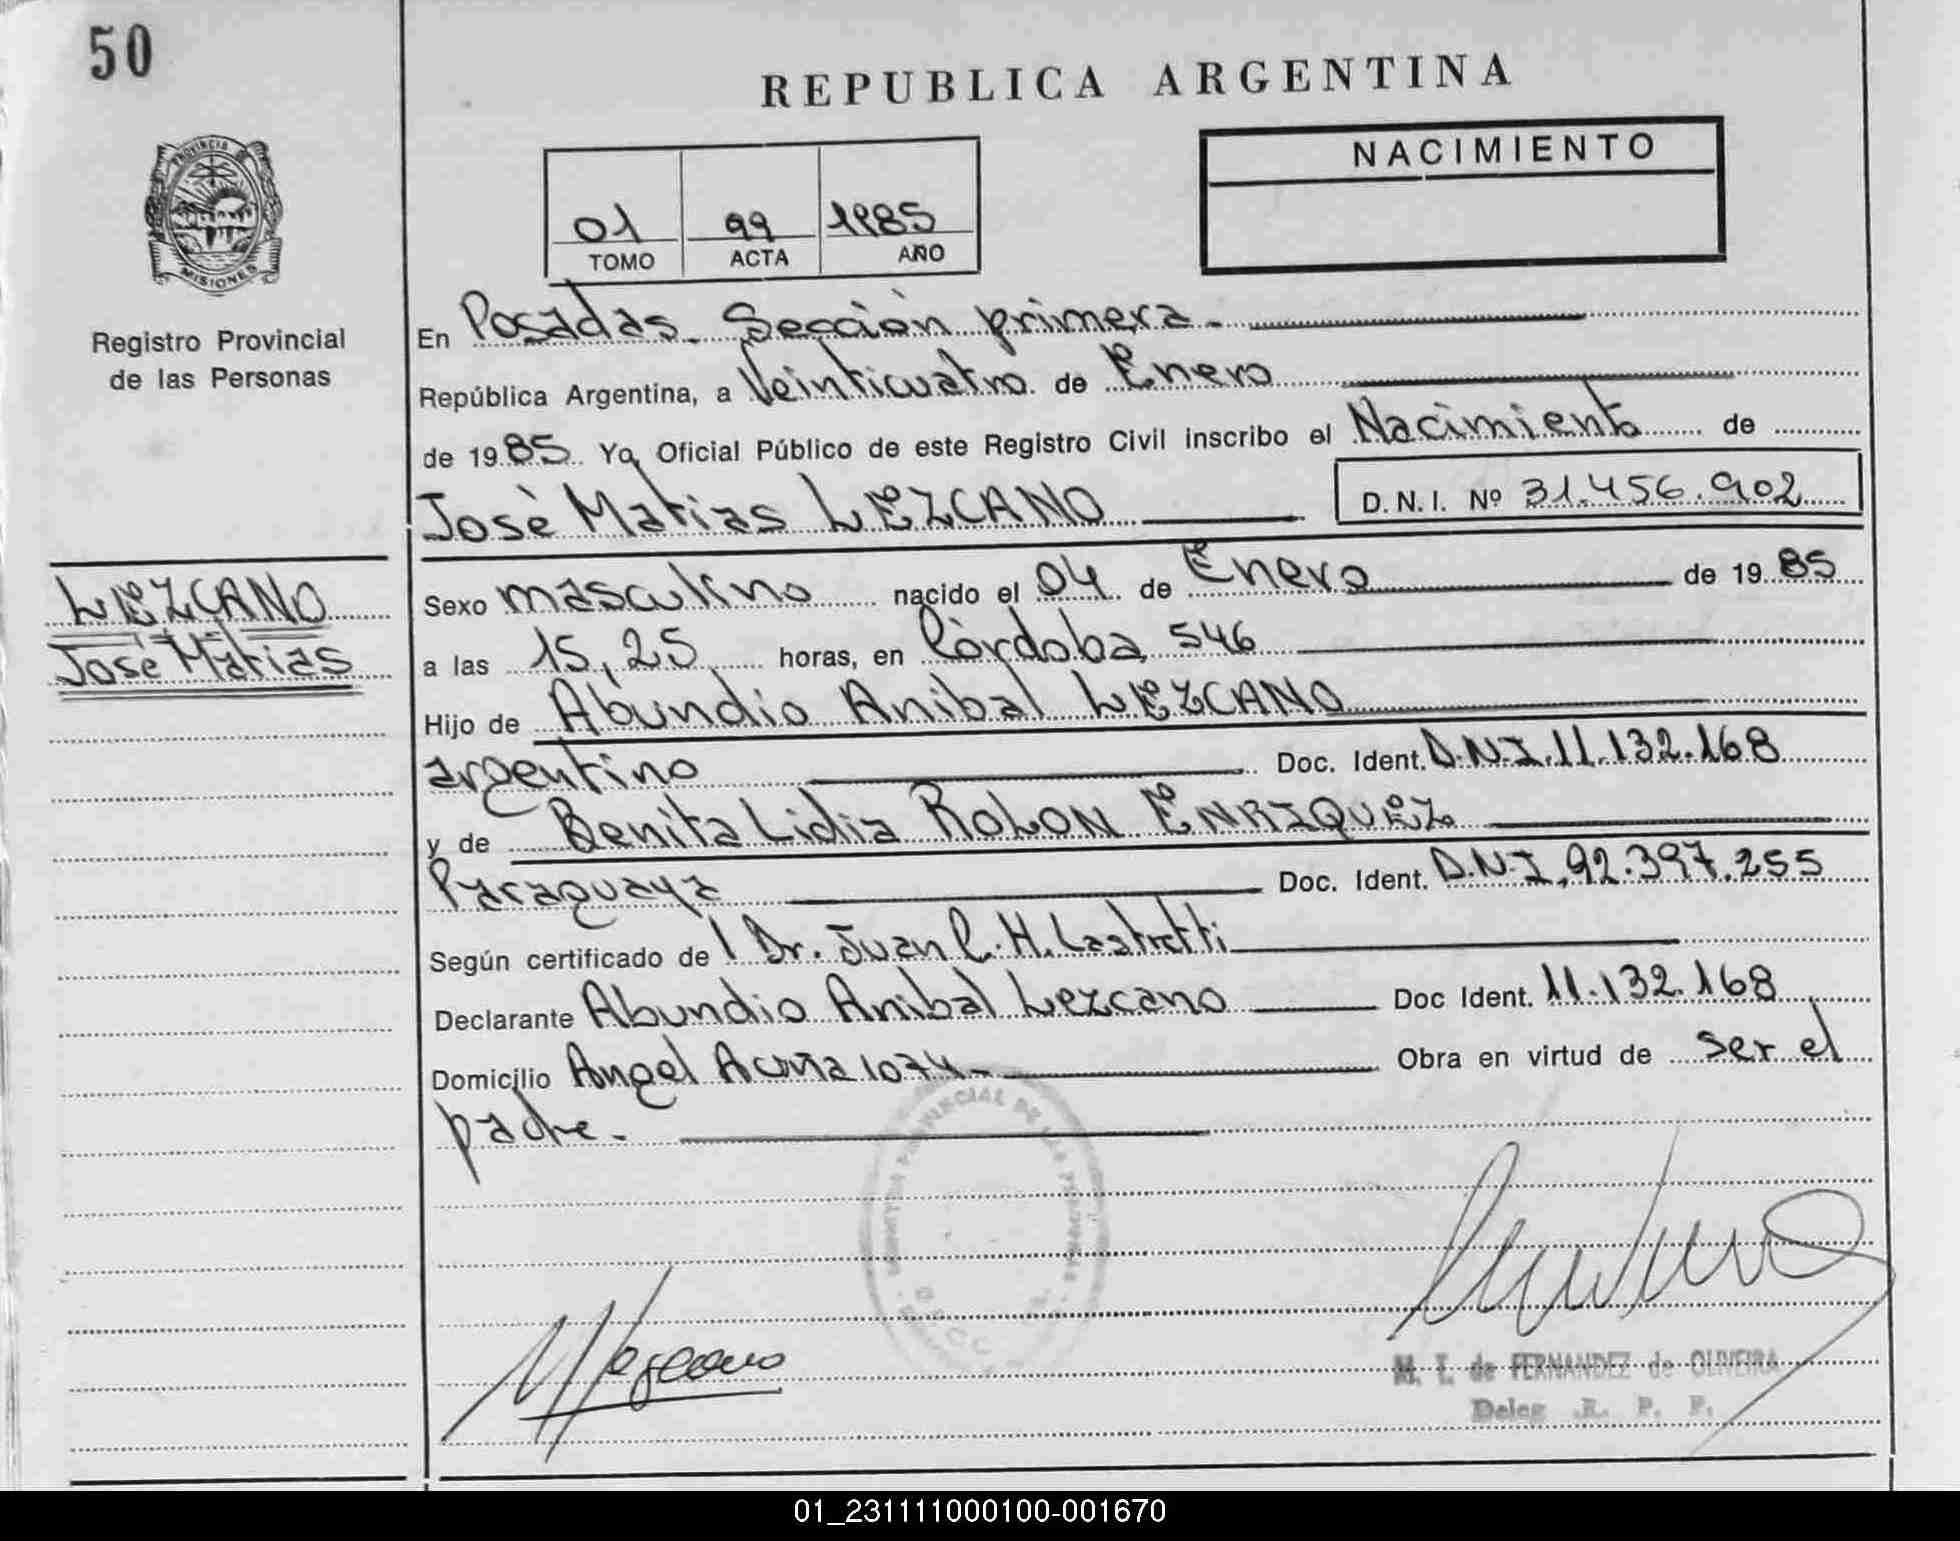 50
REPUBLICA ARGENTINA
PROVINCIA DE
MISIONES
NACIMIENTO
01 99 1985
TOMO ACTA AÑO
Registro Provincial
de las Personas
En Posadas. Sección primera.
República Argentina, a Veinticuatro de Enero
de 1985. Yo, Oficial Público de este Registro Civil inscribo el Nacimiento de
José Matias LEZCANO D.N.I. Nº 31.456.902
LEZCANO
José Matias
Sexo masculino nacido el 04 de Enero de 1985
a las 15,25 horas, en Córdoba 546
Hijo de Abundio Anibal LEZCANO
argentino Doc. Ident. D.N.I. 11.132.168
y de Benita Lidia ROLON ENRIQUEZ
Paraguaya Doc. Ident. D.N.I. 92.397.255
Según certificado de l Dr. Juan C. H. Lastretti
Declarante Abundio Anibal Lezcano Doc Ident. 11.132.168
Domicilio Angel Acuña 1074 Obra en virtud de ser el
padre.
PROVINCIAL DE LAS PERSONAS
Lezcano
M. I. de FERNANDEZ de OLIVEIRA
Deleg. R. P. P.
01_231111000100-001670